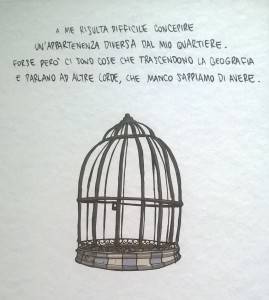 A ME RISULTA DIFFICILE CONCEPIRE
UN'APPARTENENZA DIVERSA DAL MIO QUARTIERE.
FORSE PERÒ CI SONO COSE CHE TRASCENDONO LA GEOGRAFIA
E PARLANO AD ALTRE CORDE, CHE MANCO SAPPIAMO DI AVERE.